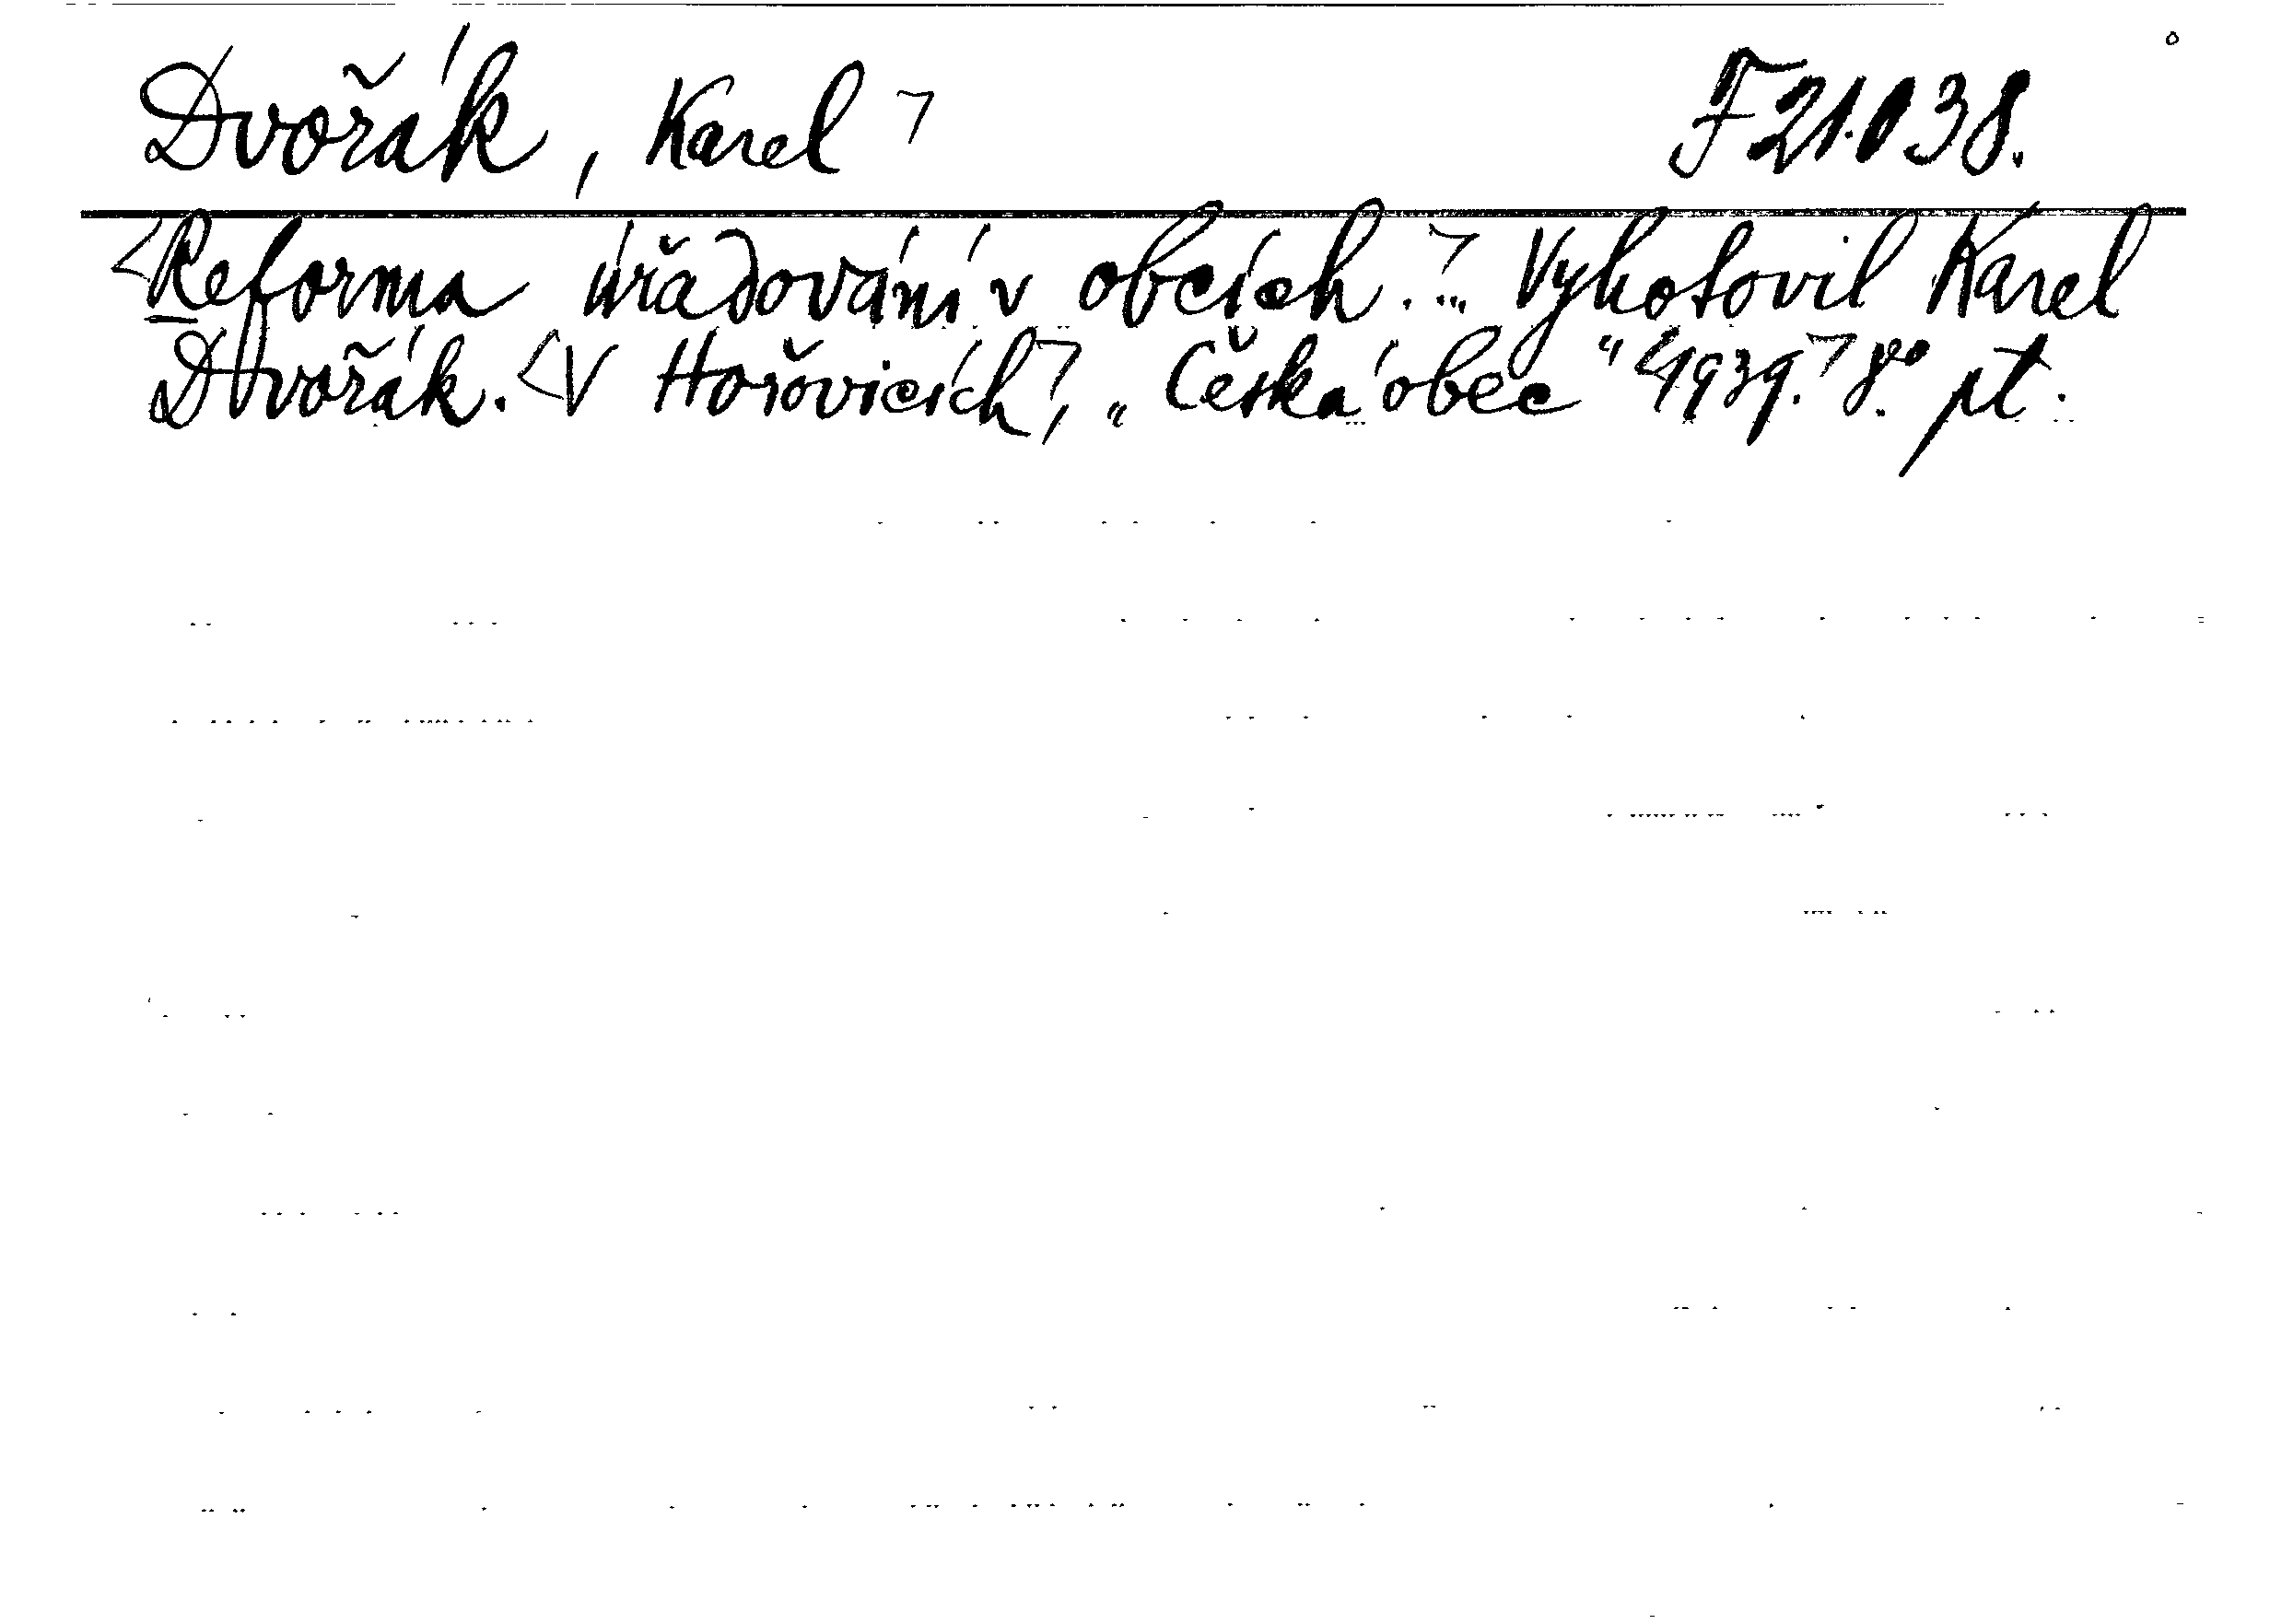 Dvořák, Karel ㄱ F 21.038.
<Reforma úřadování v obcích.ㄱ... Vyhotovil Karel
Dvořák. <V Hořovicích,ㄱ „Česká obec“ <1939.ㄱ 8° pt.